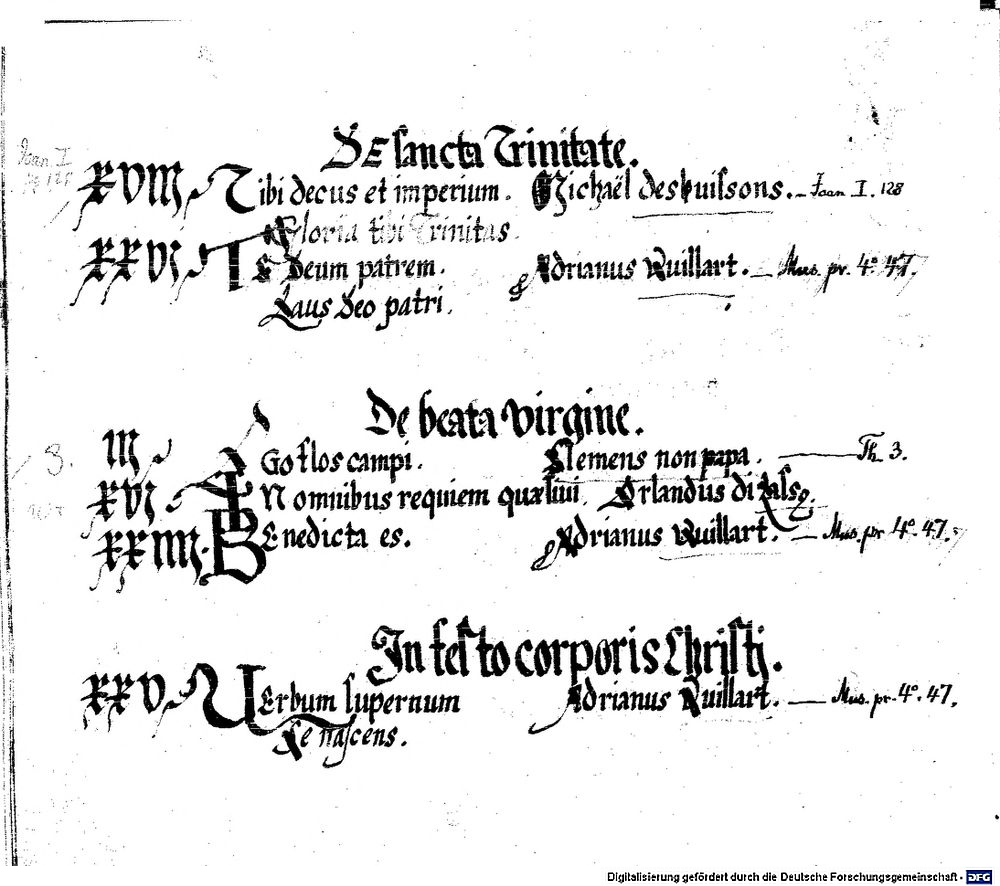 De sancta Trinitate.
XVIII Tibi decus et imperium. Michaël desbuissons. - Joan I. 128
Gloria tibi Trinitas.
XXVI Te Deum patrem. Adrianus Vuillart. - Mus. pr. 4º 47.
Laus Deo patri.
De beata virgine.
3. III Ego flos campi. Clemens non papa. - Th. 3.
XVI In omnibus requiem quæsiui. Orlandus di Lasso.
XXIIII. Benedicta es. Adrianus Vuillart. - Mus. pr 4º. 47.
In festo corporis Christi.
XXV Verbum supernum Adrianus Vuillart. - Mus. pr. 4º. 47.
nascens.
Digitalisierung gefördert durch die Deutsche Forschungsgemeinschaft - DFG